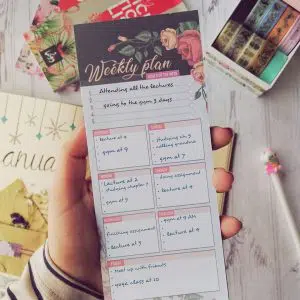 Weekly plan
Attending all the lectures
going to the gym 3 days
lecture at 9
gym at 9
studying ch 5
calling grandma
gym at 7
Lecture at 2
studying chapter 7
gym at
doing assignment
lecture at 9
finishing assignment
lecture at 9
gym at 9 AM
lecture at 9
Meet up with friends
yoga class at 10
anua